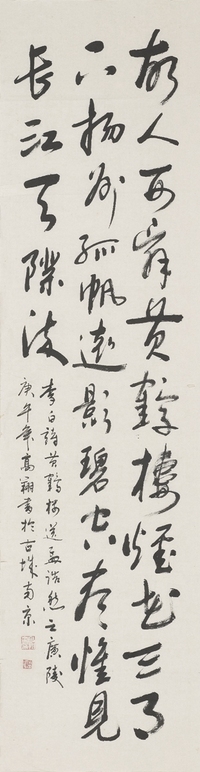 故人西辭黃鶴樓煙花三月
下揚州孤帆遠影碧空盡惟見
長江天際流
李白詩黃鶴樓送孟浩然之廣陵
庚午年高翔書於古城南京